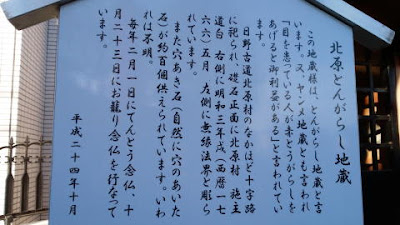 北原とんがらし地蔵
この地蔵様は、とんがらし地蔵と言
います。又、ヤンメ地蔵とも言われ
「目を患っている人が赤とうがらしを
あげると御利益がある」と言われてい
ます。
日野古道北原村のなかほど十字路
に祀られ、礎石正面に北原村 施主
道白 右側に明和三年戌(西暦一七
六六)五月 左側に無縁法界と彫ら
れています。
また穴あき石(自然に穴のあいた
石)が約百個供えられています。いわ
れは不明。
毎年二月一日にてんとう念仏、十
月二十三日にお籠り念仏を行なって
います。
平成二十四年十月